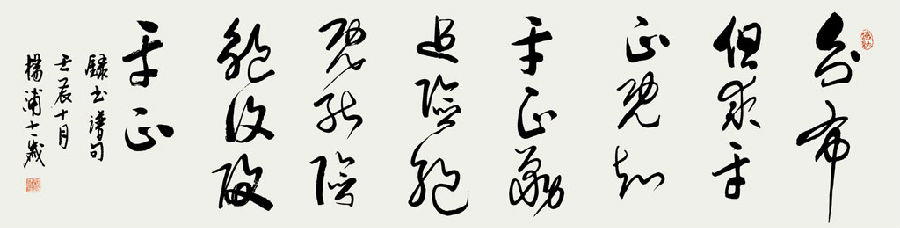 分布
但求平
正既知
平正務
追險絕
既能險
絕復歸
平正
錄書譜句
壬辰十月
浦十歲